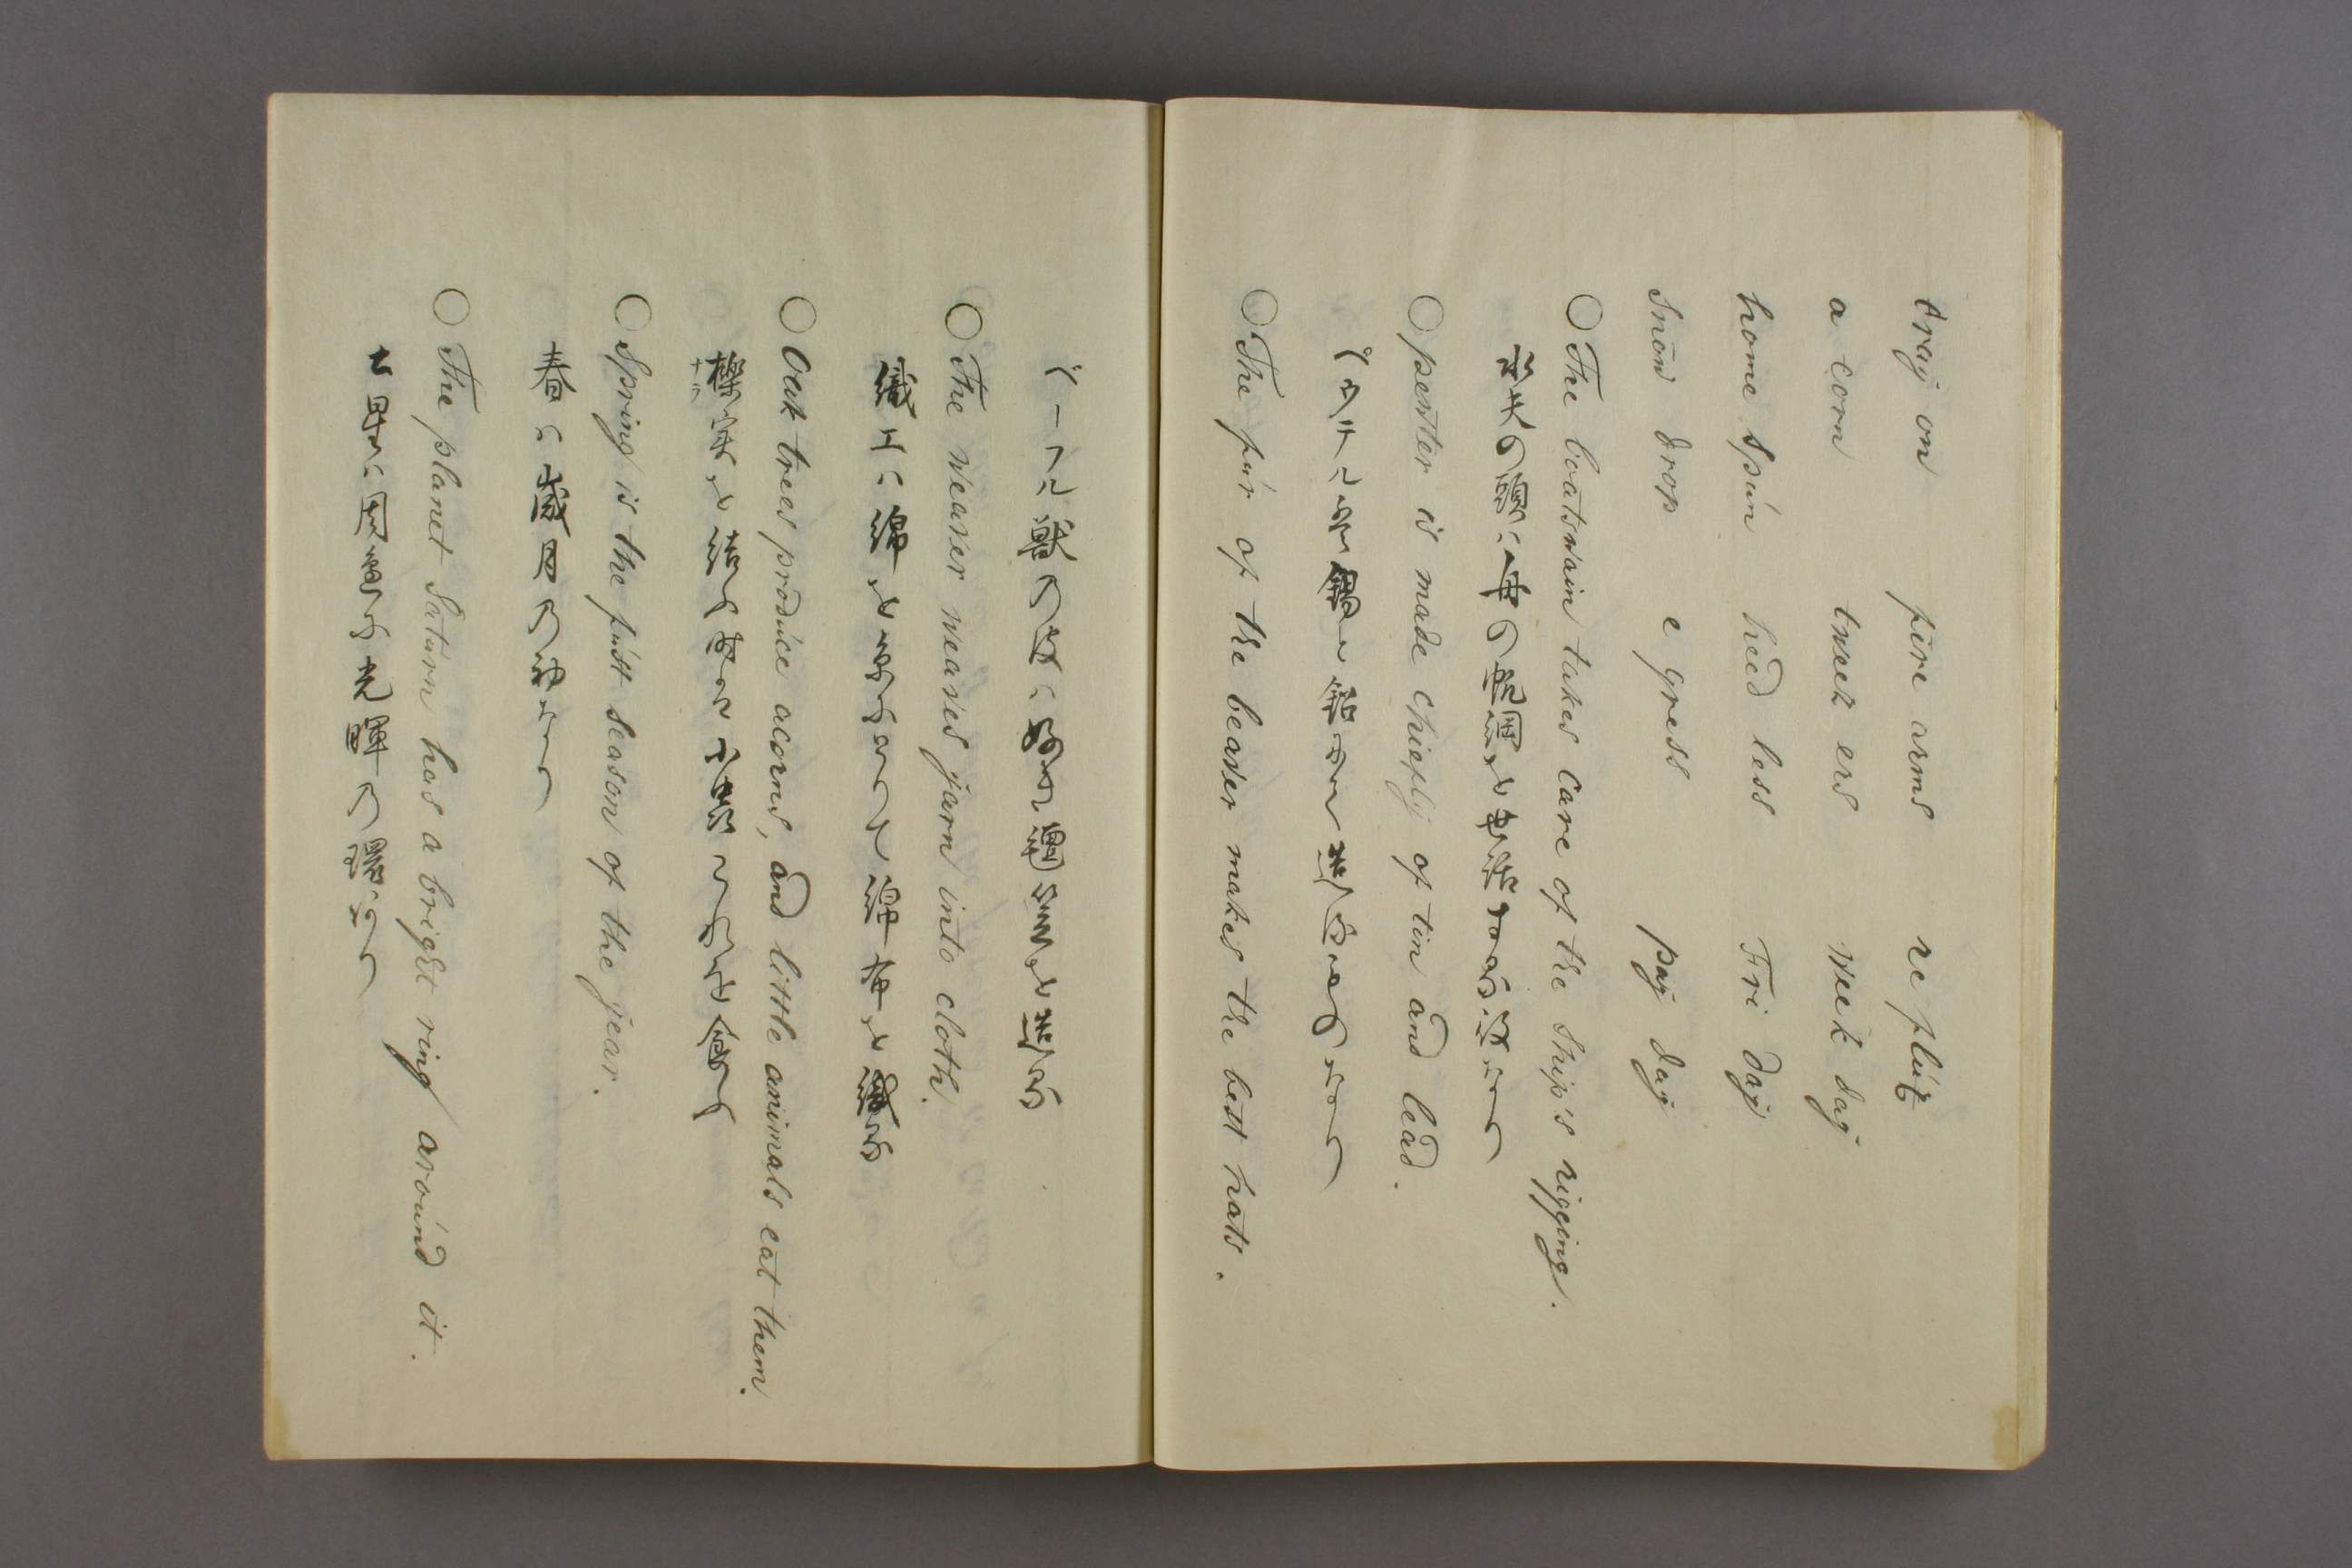 traÿ on fire arms re flúx
a corn tweek ers week daÿ
home spún heed less Fri daÿ
snow drop e gress paÿ daÿ
○ The boatswain takes care of the ship's rigging.
水夫の頭ハ舟の帆綱を
○ pewter is made chiefly of tin and lead.
ペウテル 錫と鉛 造
○ The fúr of the beaver makes the best hats.
ベーフル獣の皮ハ好き氊笠を造る
○ The weaver weaves yarn into cloth.
織工ハ綿を糸 綿布を織る
○ Oak trees prodúce acorns, and little animals eat them.
櫟ナラ実を結ふ 小 これを食ふ
○ Spring is the first season of the ÿear.
春ハ歳月の初なり
○ The planet Satúrn has a bright ring aroúnd it.
土星ハ周 光暉の環あり